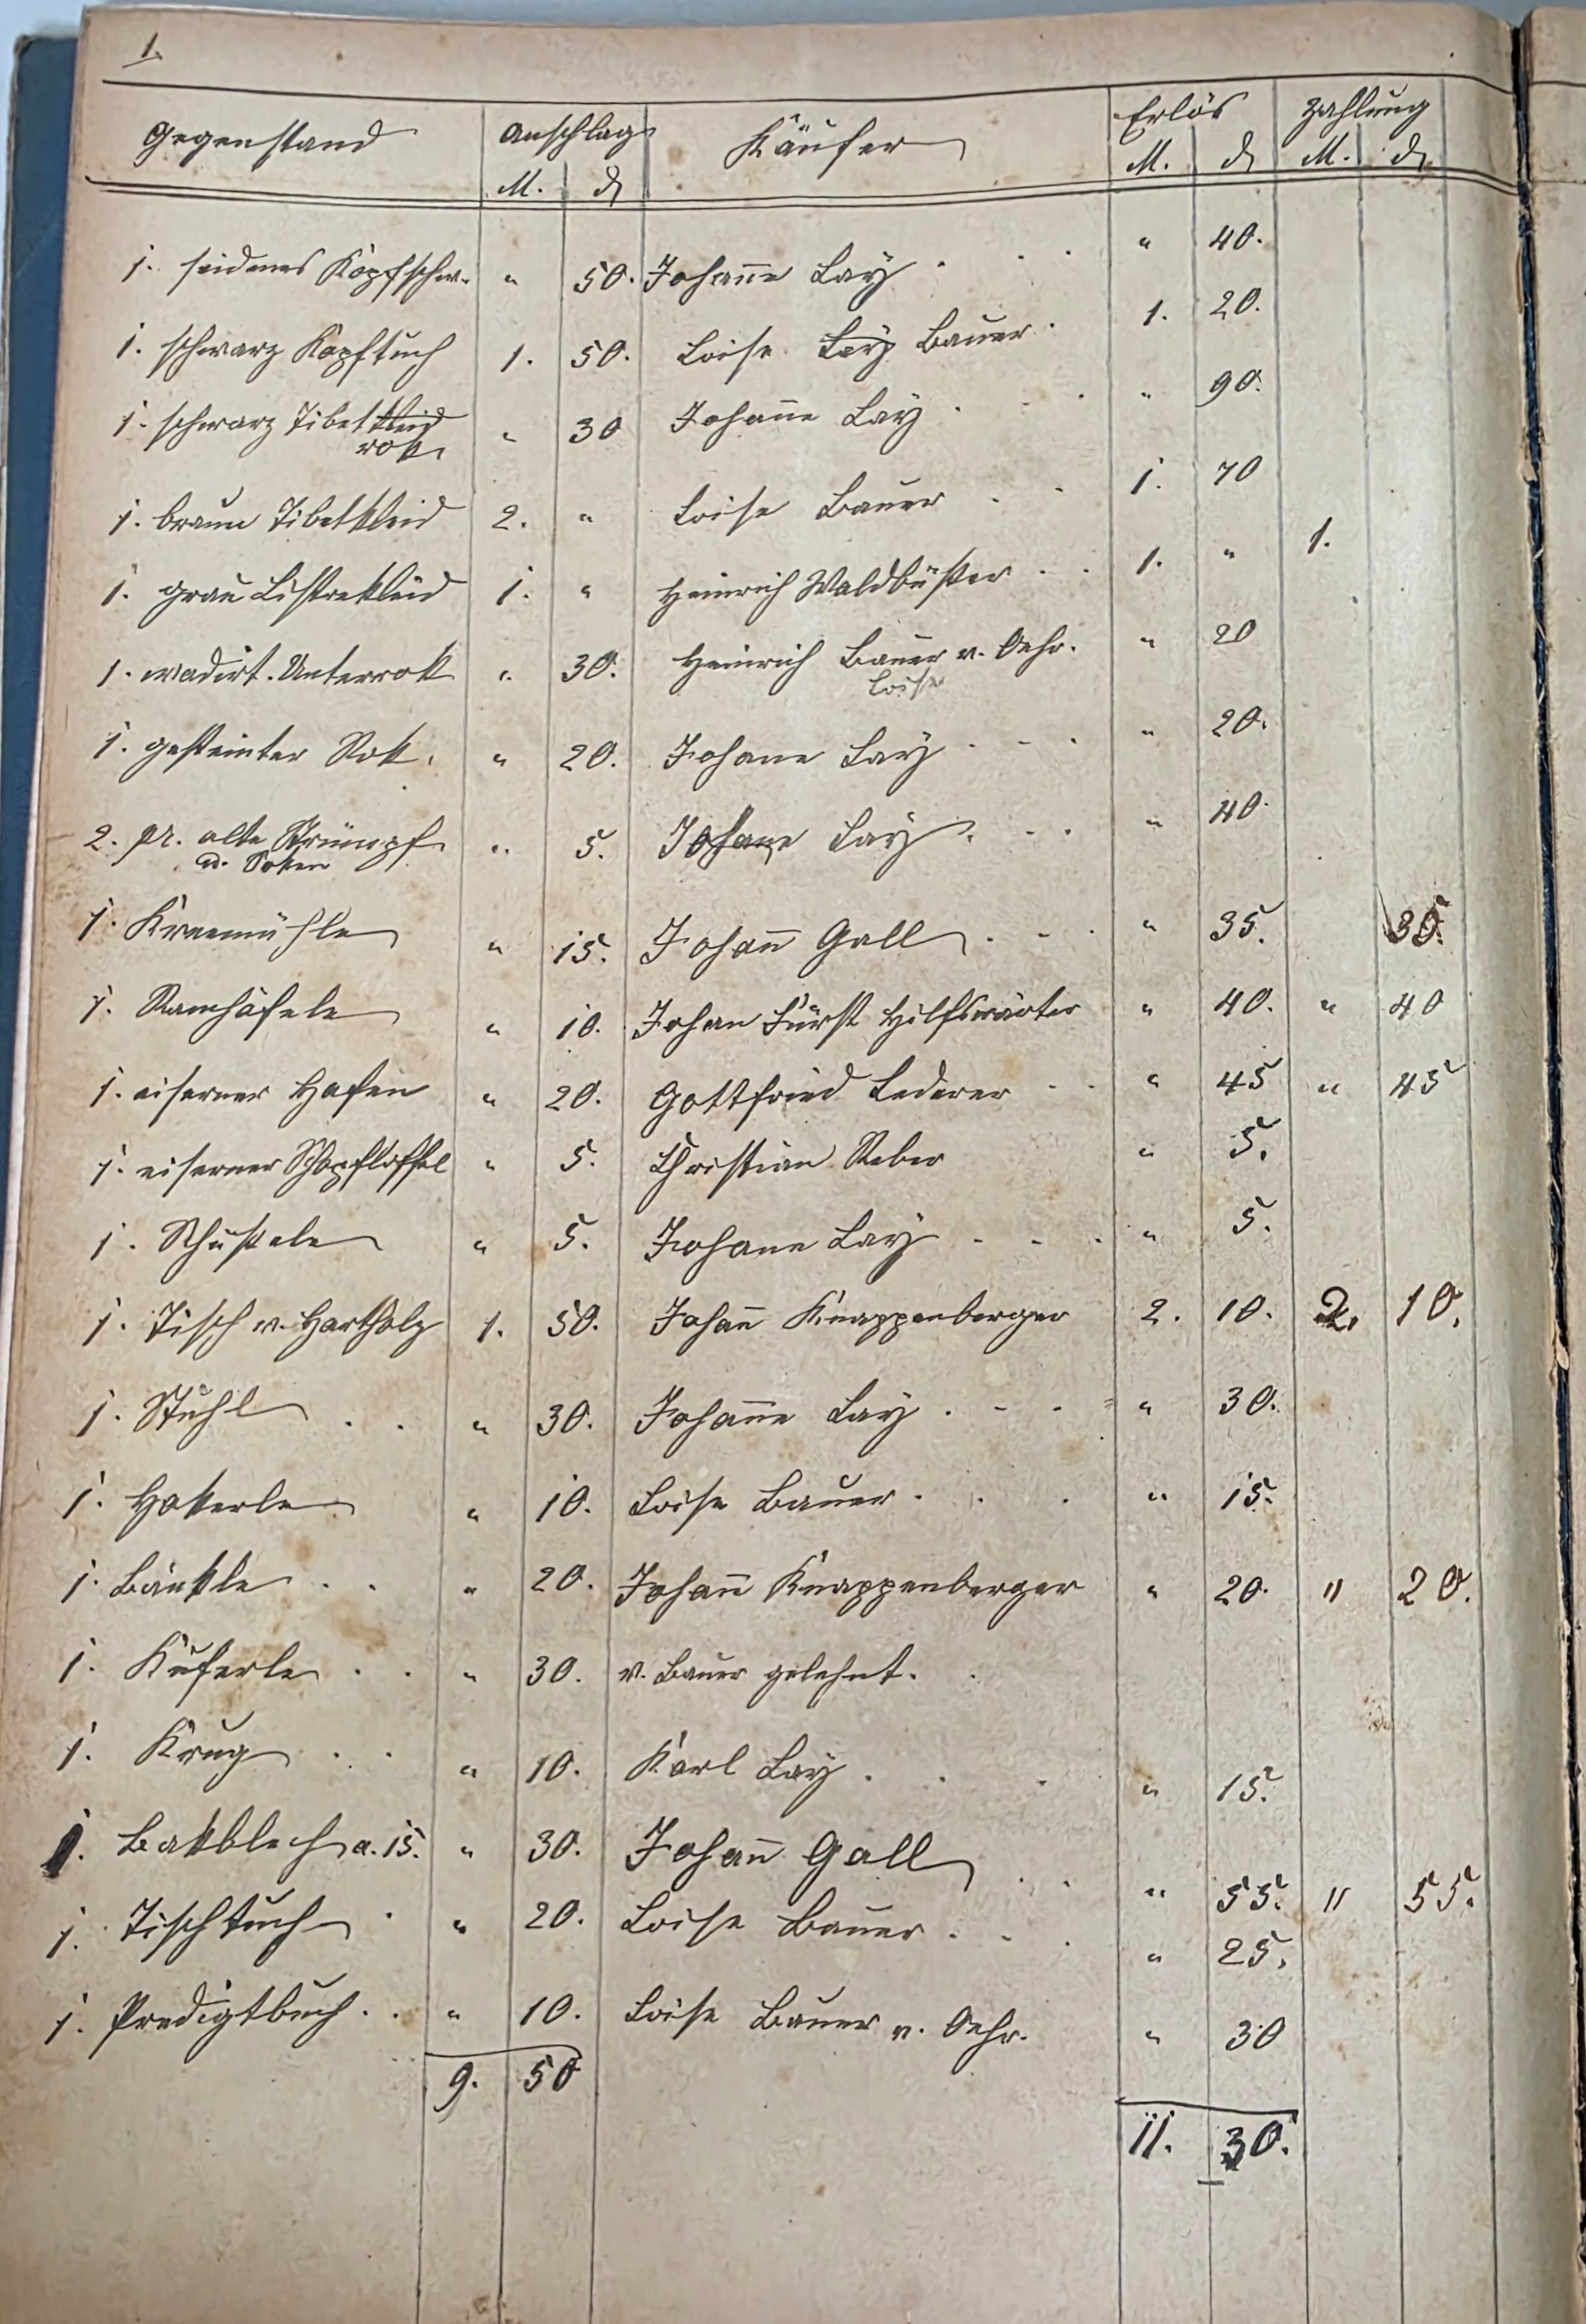 1.
Gegenstand Anschlag Käufer Erlös Zahlung
M. ₰ M. ₰ M. ₰
1. seidenes Kopfschw. " 50. Johanne Lay . . . " 40.
1. schwarz Kopftuch 1. 50. Loise Lay Bauer . 1. 20.
1. schwarz Tibetkleid " 30 Johanne Lay . . . " 90.
rok
1. braun Tibetkleid 2. " Loise Bauer . . 1. 70
1. grau Listrekleid 1. " Heinrich Waldbüßer . . 1. " 1.
1. wadirt. Unterrok " 30. Heinrich Bauer v. Oehr. " 20
Loise
1. gesteinter Rok. " 20. Johane Lay . . . " 20.
2. pr. alte Strümpf " 5. Johane Lay . . . " 40.
u. Soken
1. Kraemühle " 15. Johann Gall . . . " 35. 35.
1. Ramhäfele " 10. Johan Fürst Hilfswärter " 40. " 40
1. eiserner Hafen " 20. Gottfried Lederer . . " 45 " 45
1. eiserner Schopflöffel " 5. Christian Reber " 5.
1. Schüsele " 5. Johane Lay . . . " 5.
1. Tisch v. Hartholz 1. 50. Johann Knappenberger 2. 10. 2. 10.
1. Stuhl . . " 30. Johanne Lay . . . " 30.
1. Hokerle " 10. Loise Bauer . . . " 15.
1. Bänkle . . " 20. Johann Knappenberger " 20. " 20.
1. Küferle . . " 30. v. Bauer gelehnt. .
1. Krug . . " 10. Karl Lay . . . " 15.
1. Bakblech a. 15. " 30. Johann Gall . . " 55. " 55.
1. Tischtuch . " 20. Loise Bauer . . . " 25.
1. Predigtbuch . . " 10. Loise Bauer v. Oehr. " 30
9. 50
11. 30.